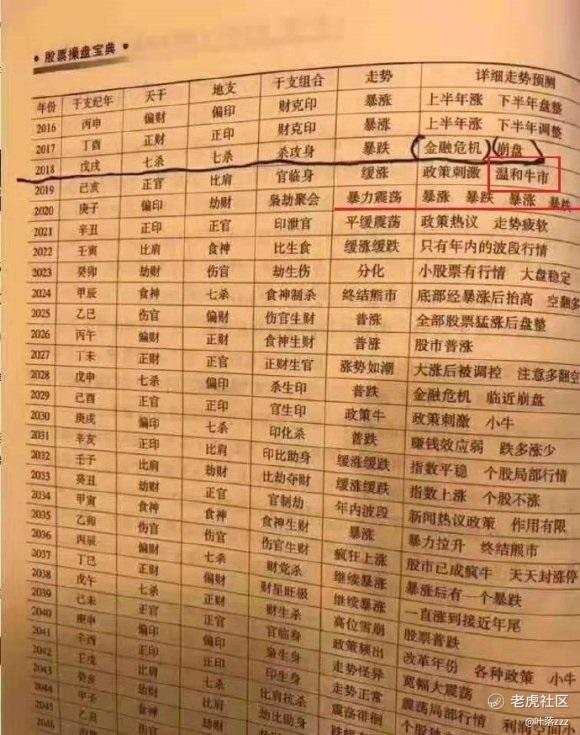 •股票操盘宝典•
年份 干支纪年 天干 地支 干支组合 走势 详细走势预测
2016 丙申 偏财 偏印 财克印 暴涨 上半年涨 下半年盘整
2017 丁酉 正财 正印 财克印 暴涨 上半年涨 下半年调整
2018 戊戌 七杀 七杀 杀攻身 暴跌 金融危机 崩盘
2019 己亥 正官 比肩 官临身 缓涨 政策刺激 温和牛市
2020 庚子 偏印 劫财 枭劫聚会 暴力震荡 暴涨 暴跌 暴涨 暴跌
2021 辛丑 正印 正官 印泄官 平缓震荡 政策热议 走势疲软
2022 壬寅 比肩 食神 比生食 缓涨缓跌 只有年内的波段行情
2023 癸卯 劫财 伤官 劫生伤 分化 小股票有行情 大盘稳定
2024 甲辰 食神 七杀 食神制杀 终结熊市 底部经暴涨后抬高 空翻多
2025 乙巳 伤官 偏财 伤官生财 普涨 全部股票猛涨后盘整
2026 丙午 偏财 正财 食神生财 普涨 股市普涨
2027 丁未 正财 正官 正财生官 涨势如潮 大涨后被调控 注意多翻空
2028 戊申 七杀 偏印 杀生印 普跌 金融危机 临近崩盘
2029 己酉 正官 正印 官生印 政策牛 政策刺激 小牛
2030 庚戌 偏印 七杀 印化杀 普跌 赚钱效应弱 跌多涨少
2031 辛亥 正印 比肩 印比助身 缓涨缓跌 指数平稳 个股局部行情
2032 壬子 比肩 劫财 比劫夺财 缓涨缓跌 指数上涨 个股不涨
2033 癸丑 劫财 正官 官制劫 年内波段 新闻热议政策 作用有限
2034 甲寅 食神 食神 食神生财 暴涨 暴力拉升 终结熊市
2035 乙卯 伤官 伤官 伤官生财 疯狂上涨 股市已成疯牛 天天封涨停
2036 丙辰 偏财 七杀 财党杀 继续暴涨 暴涨后有一个暴跌
2037 丁巳 正财 偏财 财星旺极 继续暴涨 一直涨到接近年尾
2038 戊午 七杀 正财 财生杀 高位雪崩 股票普跌
2039 己未 正官 正官 官临身 政策频出 改革年份 各种政策 小牛
2040 庚申 偏印 偏印 枭生身 走势怪异 宽幅大震荡
2041 辛酉 正印 正印 走势正常 震荡局部行情
2042 壬戌 比肩 七杀 比肩抗杀 震荡徘徊 利润空间小
2043 癸亥 劫财 比肩
2044 甲子
2045 乙丑
2046
老虎社区
@叶落zzz